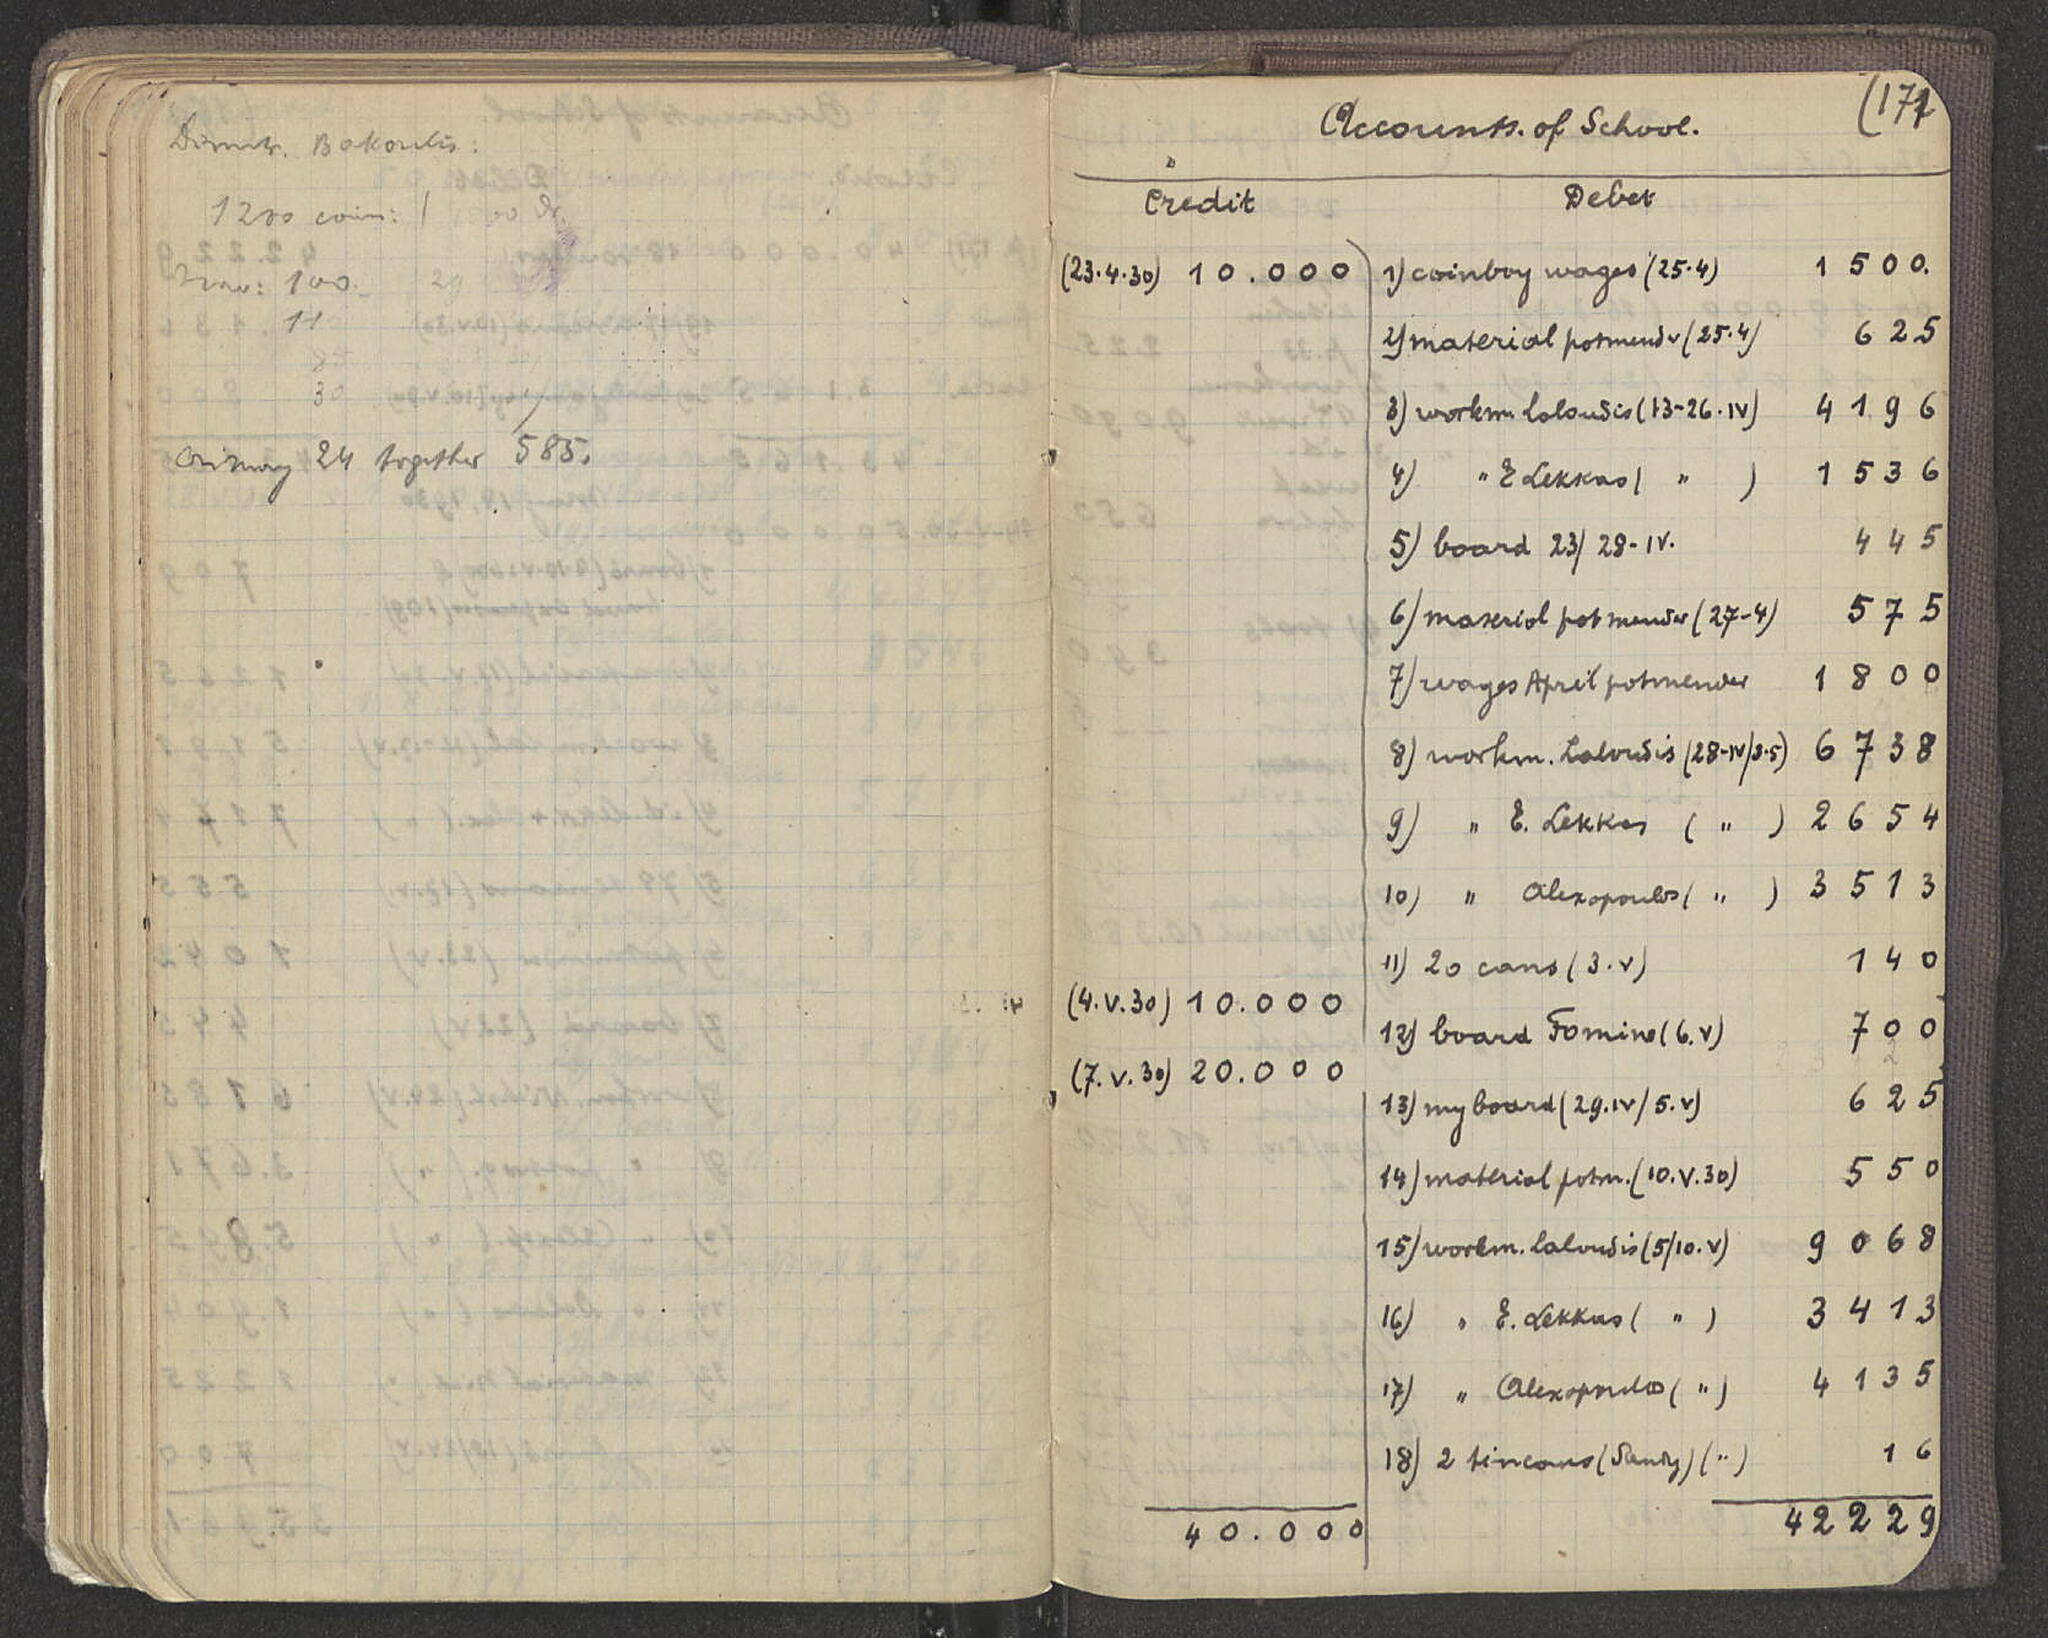 Dimitr. Bakoulis:
1200 coin:
100.
11
30
24 together 585.
(171
Accounts. of School.
Credit Debet
(23.4.30) 10.000 1) coinboy wages (25.4) 1500.
2) material potmender (25.4) 625
3) workm. Laloudis (13-26.IV) 4196
4) " E Lekkas ( " ) 1536
5) board 23/28-IV. 445
6) material potmender (27-4) 575
7) wages April potmender 1800
8) workm. Laloudis (28-IV/3-5) 6738
9) " E. Lekkas ( " ) 2654
10) " Alexopoulos ( " ) 3513
11) 20 cans (3.V) 140
(4.V.30) 10.000
12) board Fomine (6.V) 700
(7.V.30) 20.000
13) my board (29.IV/5.V) 625
14) material potm. (10.V.30) 550
15) workm. Laloudis (5/10.V) 9068
16) " E. Lekkas ( " ) 3413
17) " Alexopoulos ( " ) 4135
18) 2 tincans (Sandy) ( " ) 16
40.000 42229